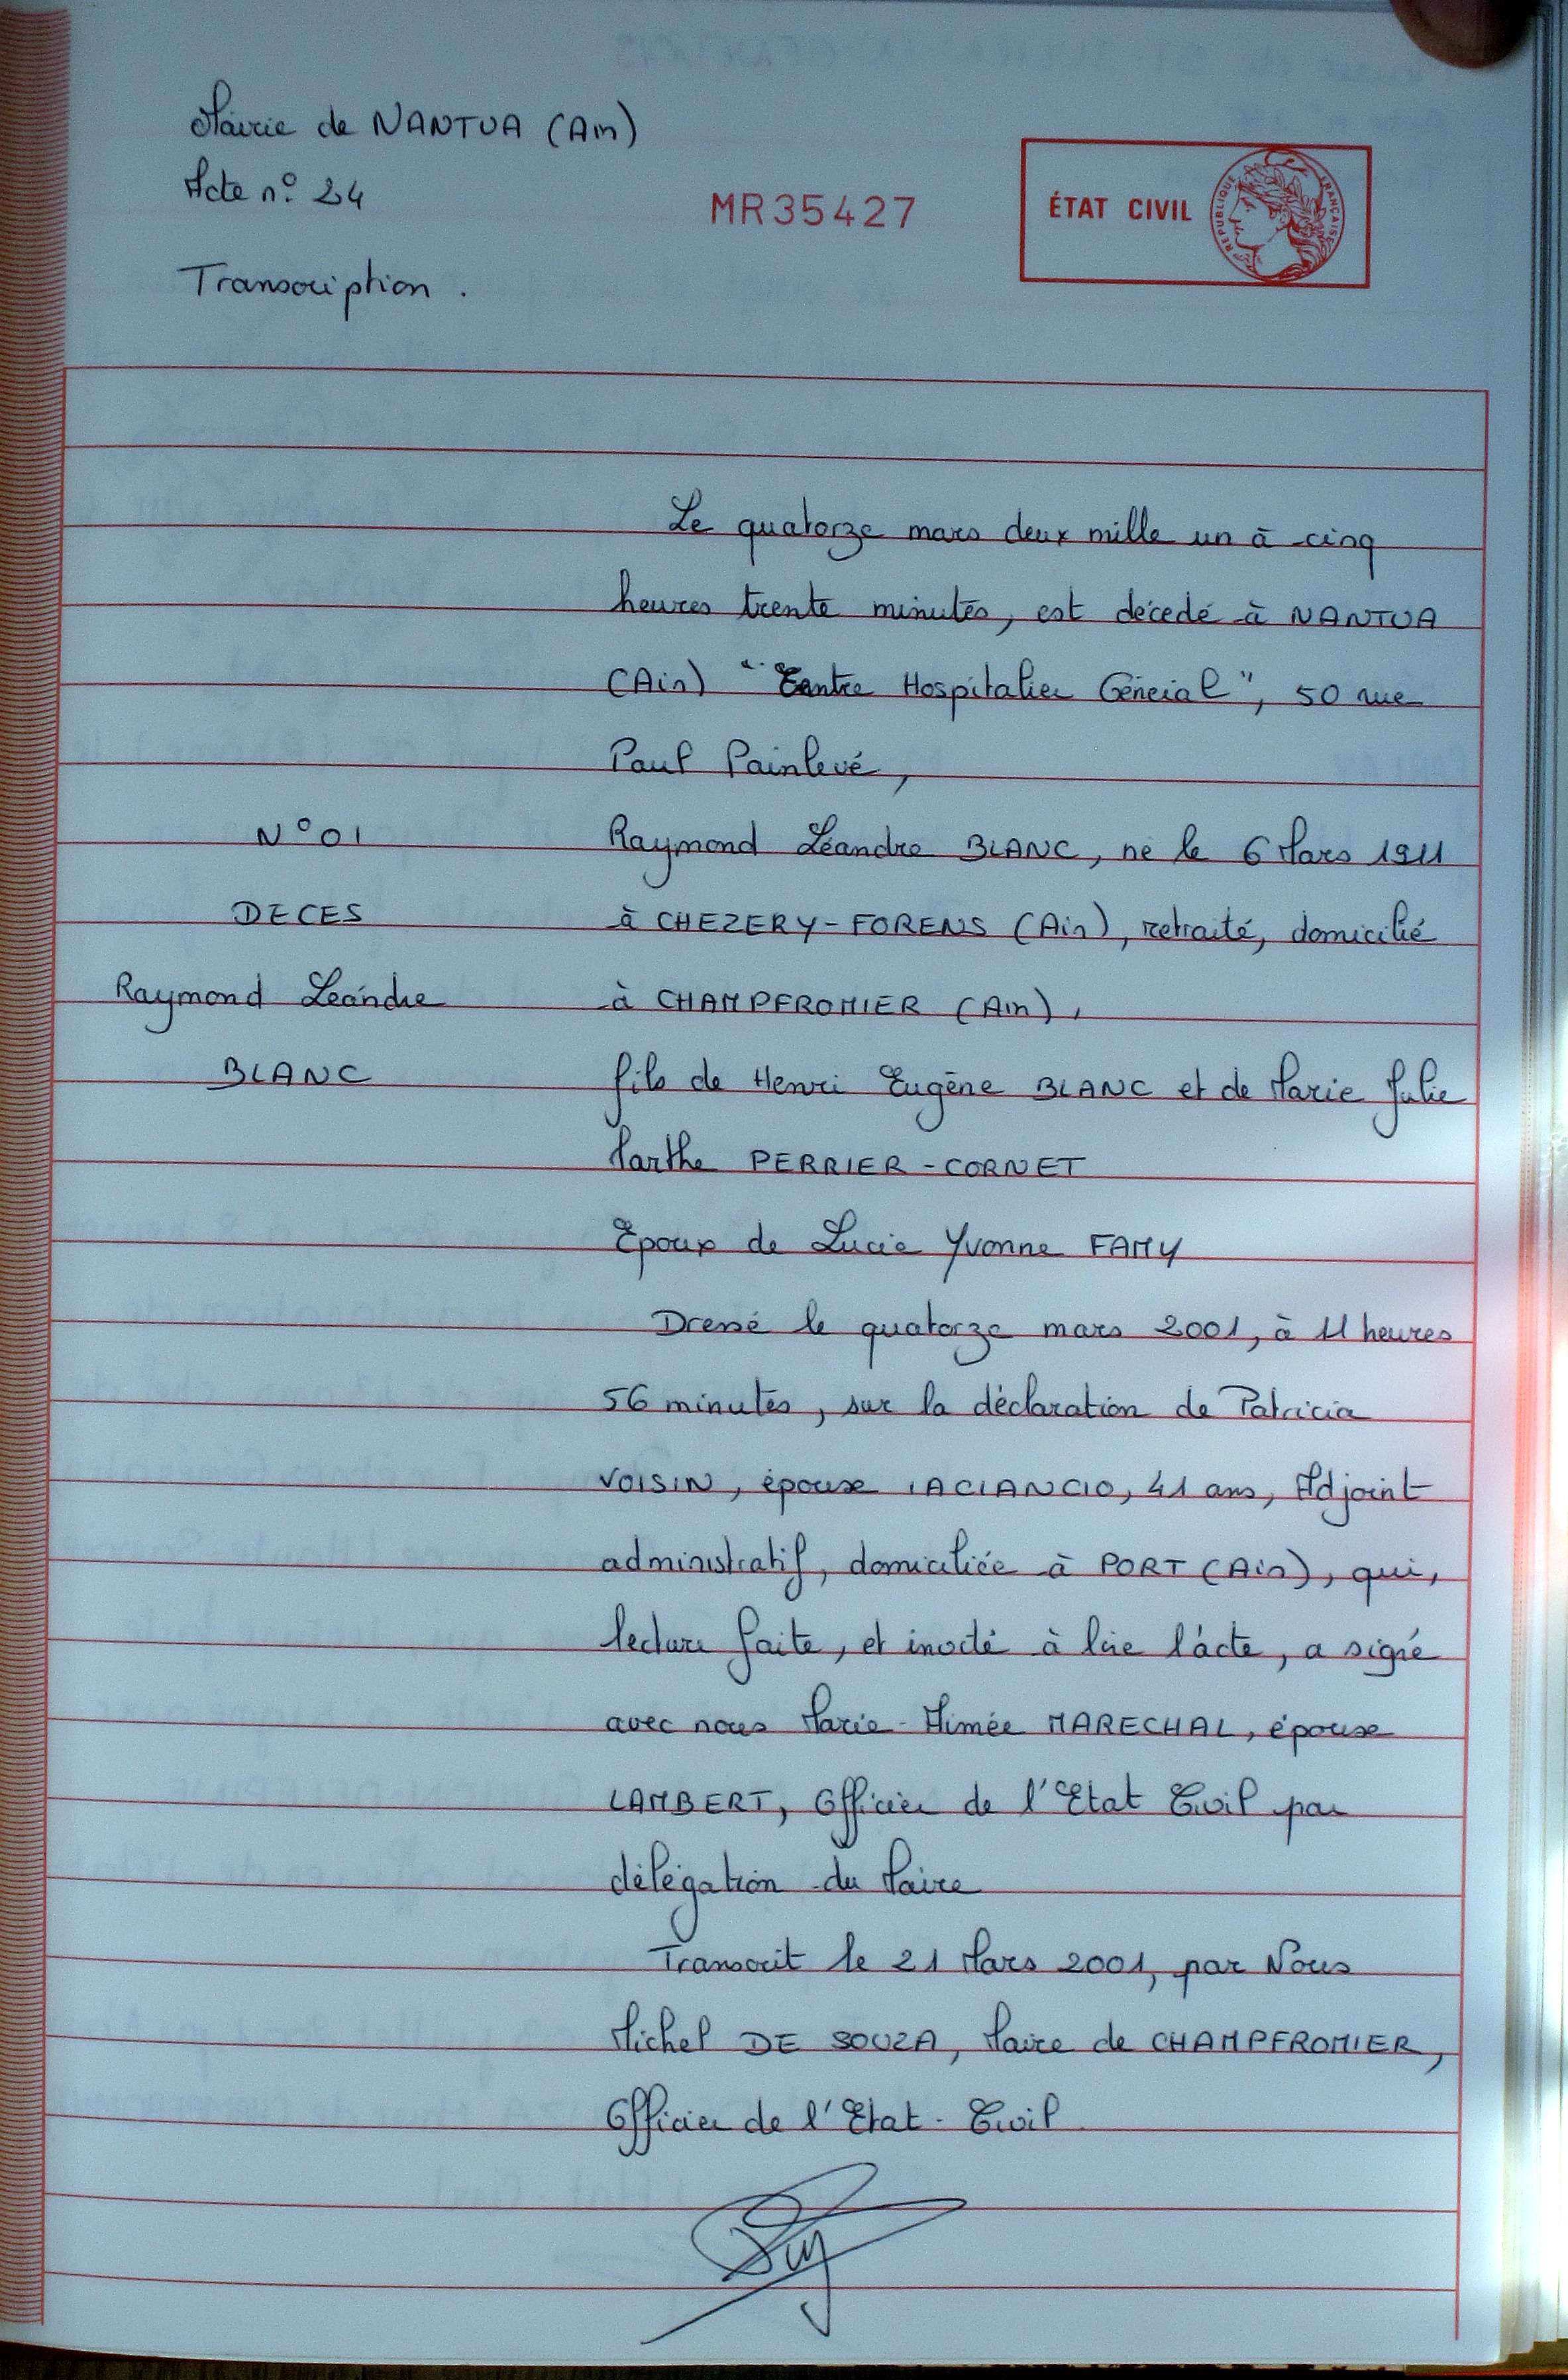 Mairie de NANTUA (Ain)
Acte n° 24
MR35427
ÉTAT CIVIL
RÉPUBLIQUE FRANÇAISE
Transcription.
Le quatorze mars deux mille un à cinq
heures trente minutes, est décédé à NANTUA
(Ain) "Centre Hospitalier Général", 50 rue
Paul Painlevé,
N°01
Raymond Léandre BLANC, né le 6 Mars 1911
DECES
à CHEZERY-FORENS (Ain), retraité, domicilié
Raymond Léandre
à CHAMPFROMIER (Ain),
BLANC
fils de Henri Eugène BLANC et de Marie Julie
Marthe PERRIER-CORNET
Epoux de Lucie Yvonne FAMY
Dressé le quatorze mars 2001, à 11 heures
56 minutes, sur la déclaration de Patricia
VOISIN, épouse IACIANCIO, 41 ans, Adjoint
administratif, domiciliée à PORT (Ain), qui,
lecture faite, et invité à lire l'acte, a signé
avec nous Marie-Aimée MARECHAL, épouse
LAMBERT, Officier de l'Etat Civil par
délégation du Maire
Transcrit le 21 Mars 2001, par Nous
Michel DE SOUZA, Maire de CHAMPFROMIER,
Officier de l'Etat-Civil